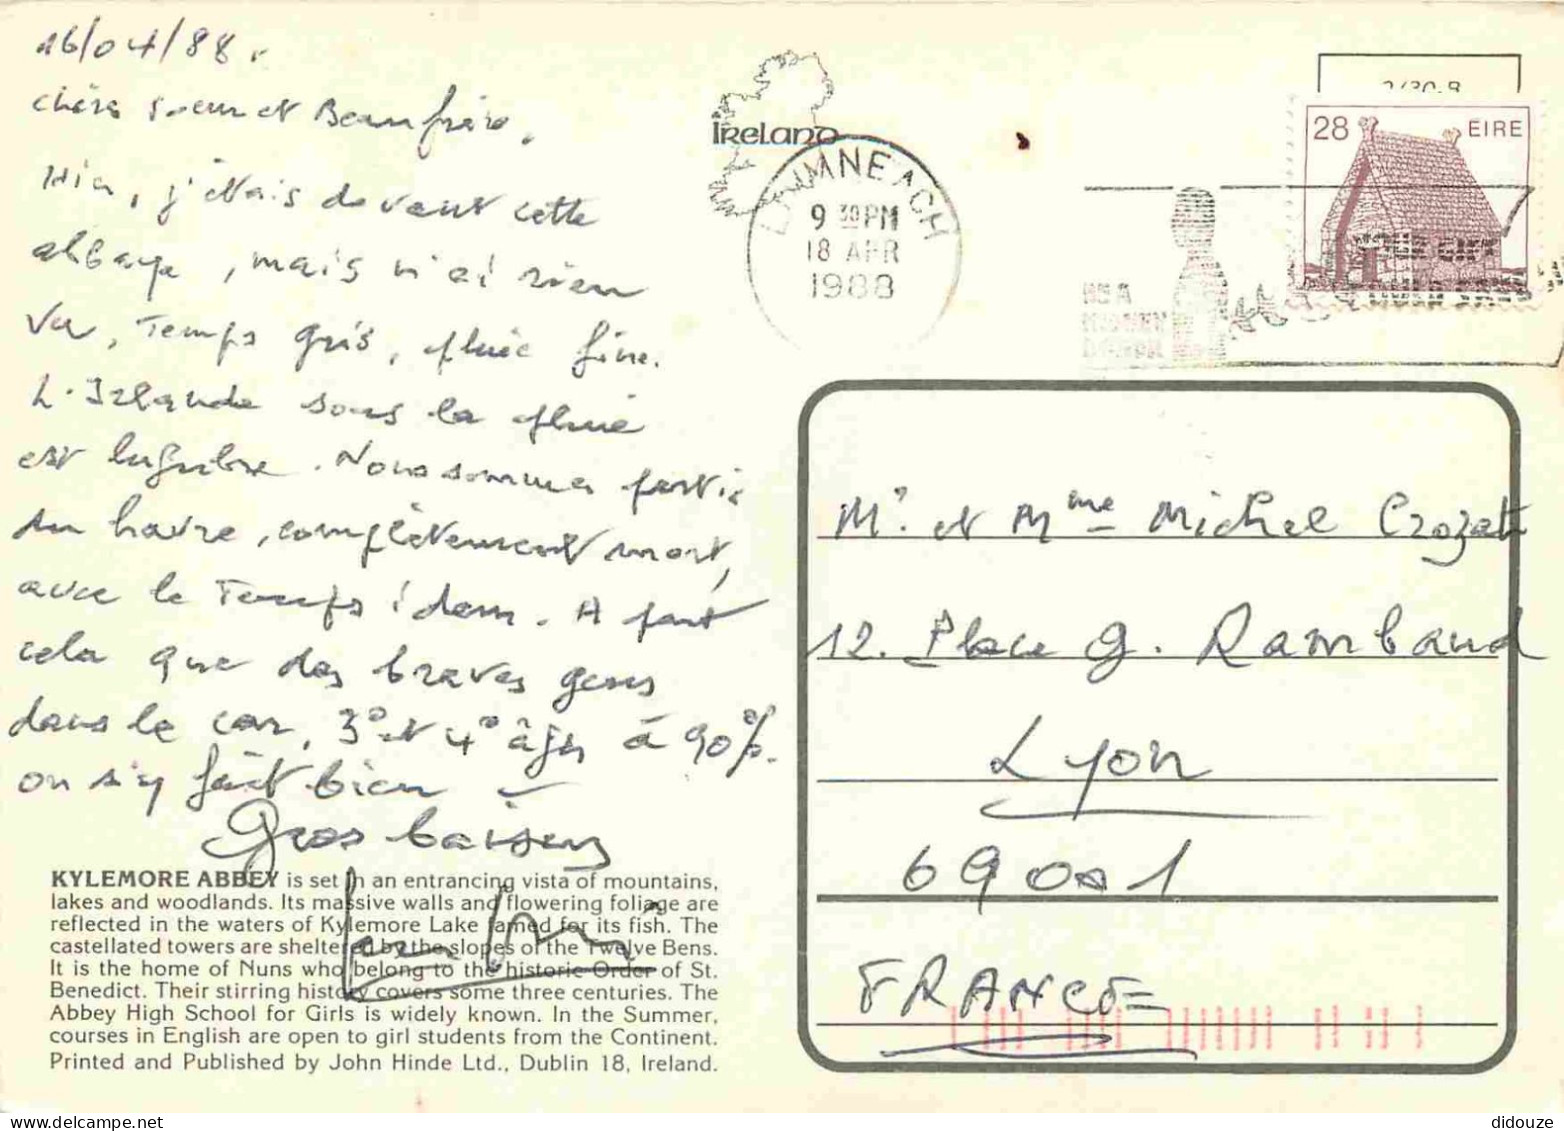 16/04/88.
chère soeur et Beaufrère,
Hier, j'étais devant cette
abbaye, mais n'ai rien
vu, Temps gris, pluie fine.
L'Irlande sous la pluie
est lugubre. Nous sommes partis
du havre, complètement mort,
avec le Temps idem. A part
cela que des braves gens
dans le car, 3° et 4° âges à 90%.
on s'y fait bien
Gros baisers
KYLEMORE ABBEY is set in an entrancing vista of mountains,
lakes and woodlands. Its massive walls and flowering foliage are
reflected in the waters of Kylemore Lake famed for its fish. The
castellated towers are sheltered by the slopes of the Twelve Bens.
It is the home of Nuns who belong to the historic Order of St.
Benedict. Their stirring history covers some three centuries. The
Abbey High School for Girls is widely known. In the Summer,
courses in English are open to girl students from the Continent.
Printed and Published by John Hinde Ltd., Dublin 18, Ireland.
IRELAND
LUIMNEACH
9 30 PM
18 APR
1988
2/30-B
28 EIRE
YOUR GIFT
BE A
KIDNEY
DONOR
Mr. et Mme Michel Crozat
12. Place G. Rambaud
Lyon
69001
FRANCE
didouze